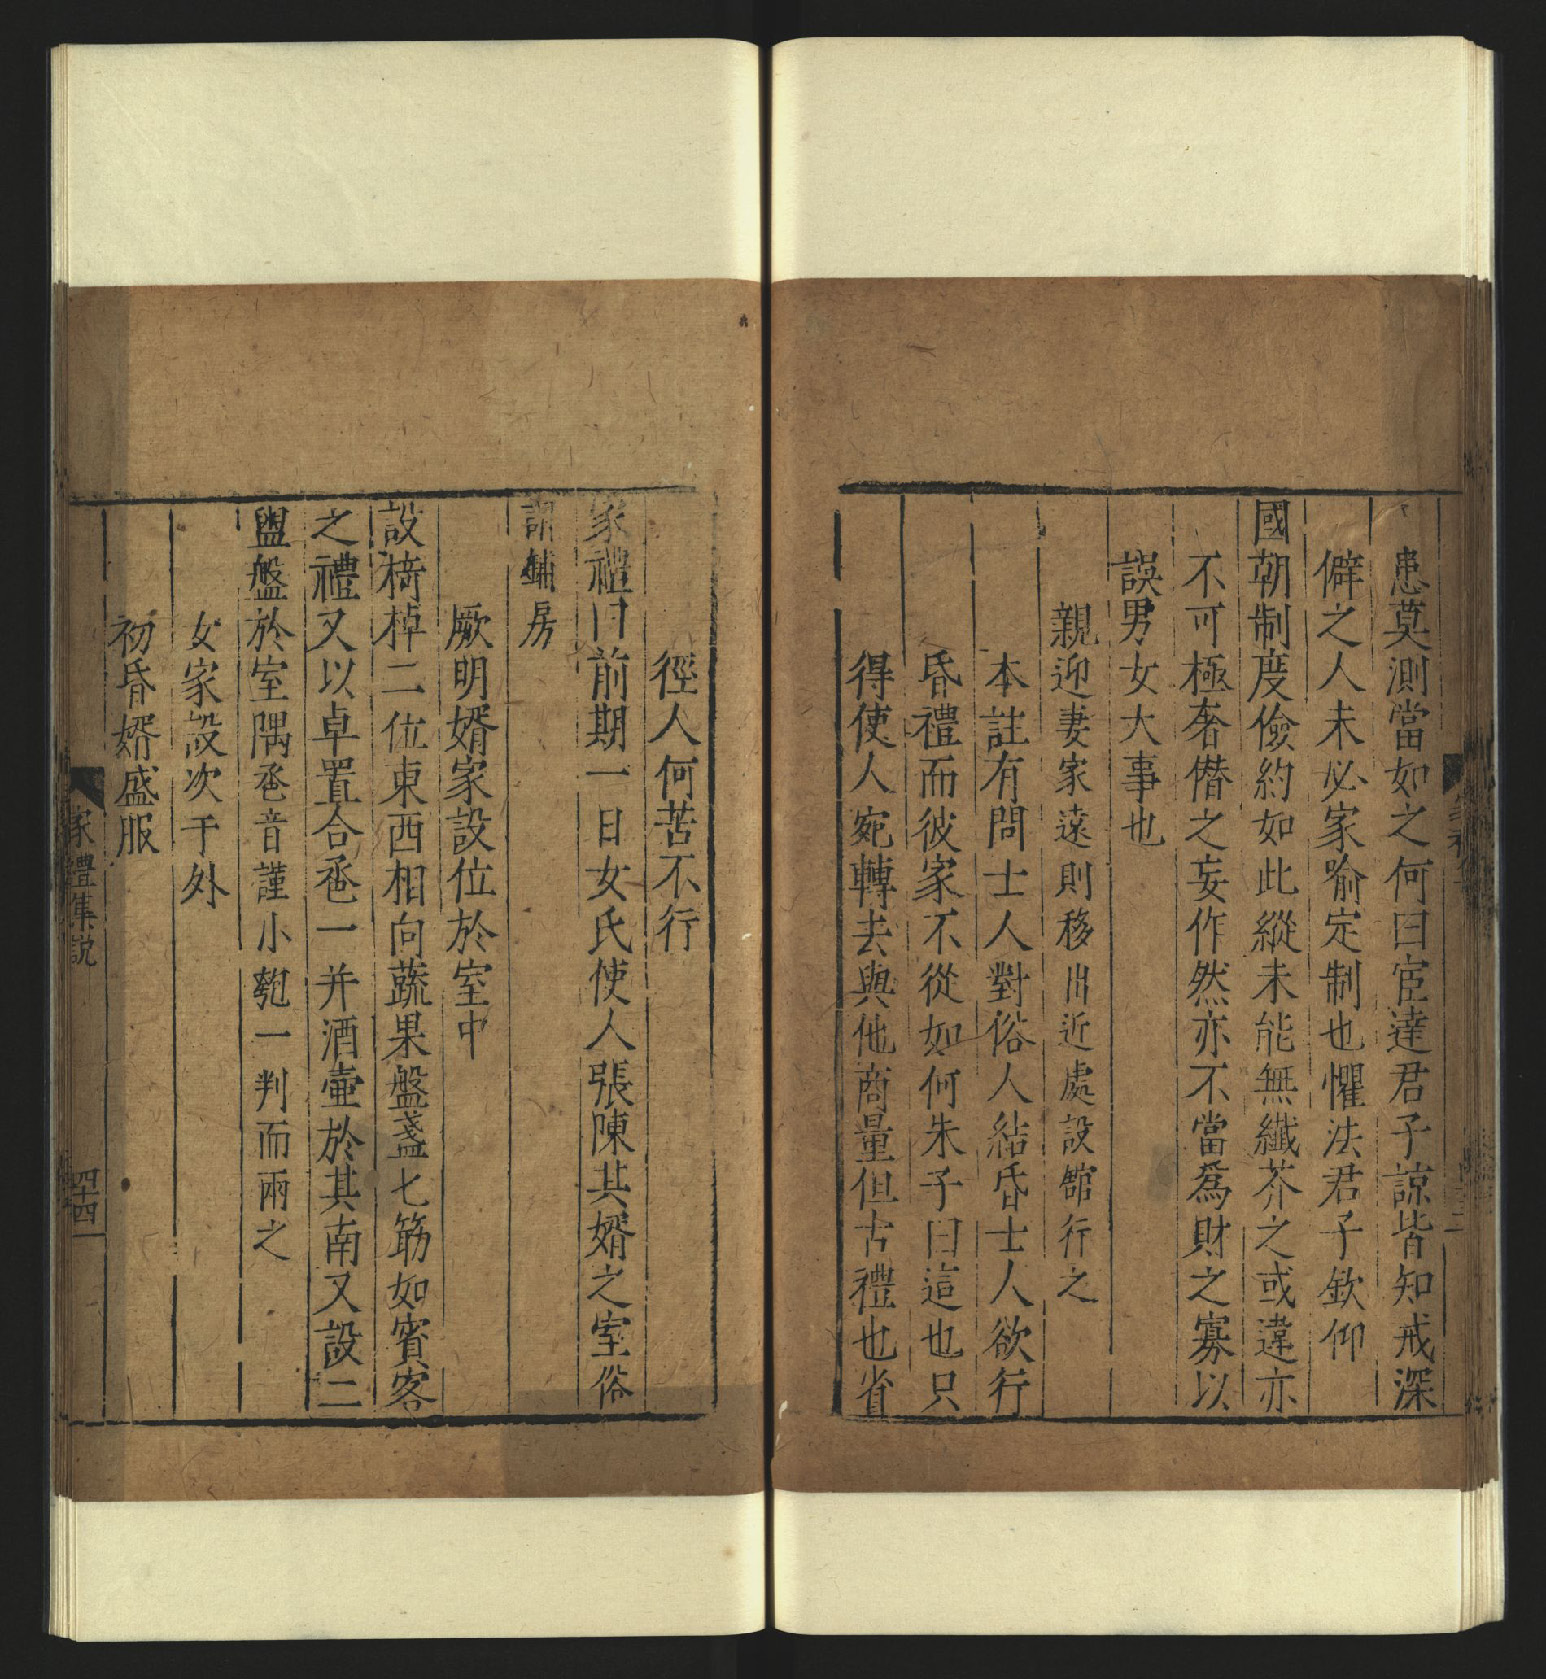 患莫測當如之何曰宦達君子諒皆知戒深
僻之人未必家喻定制也懼法君子欽仰
國朝制度儉約如此縱未能無纖芥之或違亦
不可極奢僭之妄作然亦不當爲財之寡以
誤男女大事也
親迎妻家遠則移出近處設館行之
本註有問士人對俗人結昏士人欲行
昏禮而彼家不從如何朱子曰這也只
得使人宛轉去與他商量但古禮也省
徑人何苦不行
家禮曰前期一日女氏使人張陳其婿之室俗
謂鋪房
厥明婿家設位於室中
設椅棹二位東西相向蔬果盤盞匕筯如賓客
之禮又以卓置合卺一并酒壷於其南又設二
盥盤於室隅卺音謹小匏一判而兩之
女家設次于外
初昏婿盛服
家禮集説
四十四